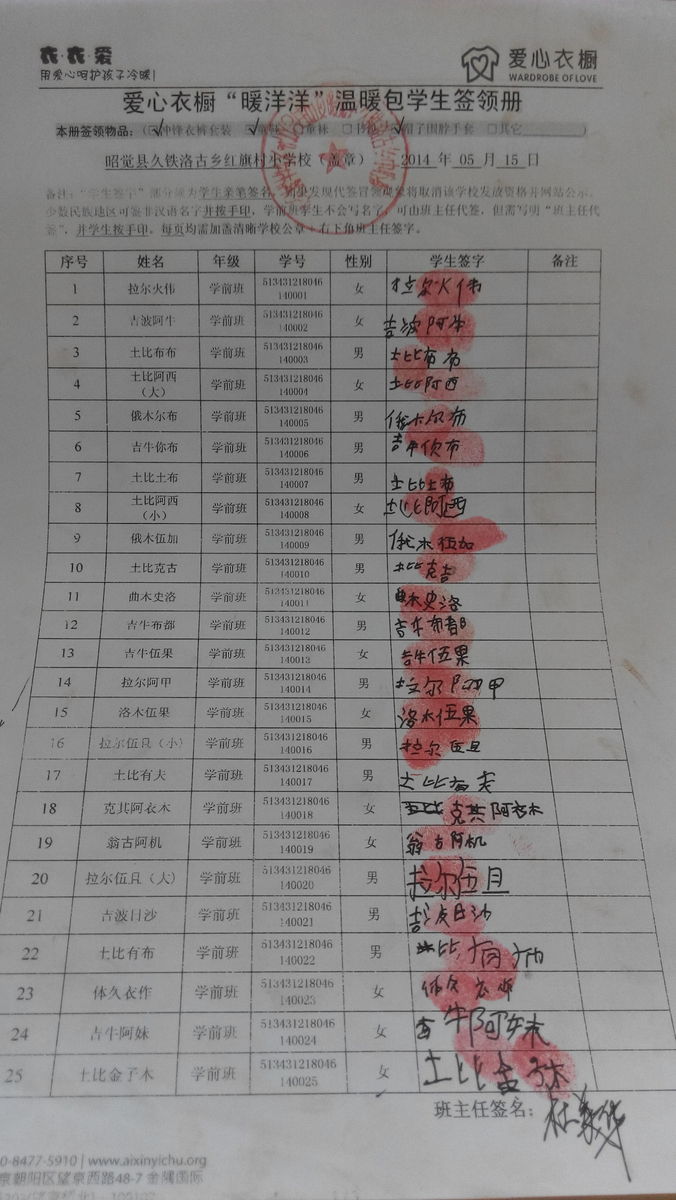 衣·衣·爱
用爱心呵护孩子冷暖!
爱心衣橱
WARDROBE OF LOVE
爱心衣橱“暖洋洋”温暖包学生签领册
本册签领物品:(☑冲锋衣裤套装 ☑ □童袜 □书包 ☑帽子围脖手套 □其它
昭觉县久铁洛古乡红旗村小学校(盖章) 2014 年 05 月 15 日
备注:“学生签字”部分须为学生亲笔签名,如果发现代签冒领现象将取消该学校发放资格并网站公示。
少数民族地区可签非汉语名字并按手印,学前班学生不会写名字,可由班主任代签,但需写明“班主任代
签”,并学生按手印。每页均需加盖清晰学校公章+右下角班主任签字。
序号 姓名 年级 学号 性别 学生签字 备注
1 拉尔火伟 学前班 513431218046140001 女 拉尔火伟
2 吉波阿牛 学前班 513431218046140002 女 吉波阿牛
3 土比布布 学前班 513431218046140003 男 土比布布
4 土比阿西(大) 学前班 513431218046140004 女 土比阿西
5 俄木尔布 学前班 513431218046140005 男 俄木尔布
6 吉牛你布 学前班 513431218046140006 男 吉牛你布
7 土比土布 学前班 513431218046140007 男 土比土布
8 土比阿西(小) 学前班 513431218046140008 女 土比阿西
9 俄木伍加 学前班 513431218046140009 男 俄木伍加
10 土比克古 学前班 513431218046140010 男 土比克吉
11 曲木史洛 学前班 513431218046140011 女 曲木史洛
12 吉牛布都 学前班 513431218046140012 男 吉牛布都
13 吉牛伍果 学前班 513431218046140013 女 吉牛伍果
14 拉尔阿甲 学前班 513431218046140014 男 拉尔阿甲
15 洛木伍果 学前班 513431218046140015 女 洛木伍果
16 拉尔伍且(小) 学前班 513431218046140016 男 拉尔伍旦
17 土比有夫 学前班 513431218046140017 男 土比有夫
18 克其阿衣木 学前班 513431218046140018 女 克其阿衣木
19 翁古阿机 学前班 513431218046140019 女 翁古阿机
20 拉尔伍且(大) 学前班 513431218046140020 男 拉尔伍且
21 吉波日沙 学前班 513431218046140021 男 吉波日沙
22 土比有布 学前班 513431218046140022 男 土比有布
23 体久衣作 学前班 513431218046140023 女 体久衣
24 吉牛阿妹 学前班 513431218046140024 女 吉牛阿妹
25 土比金子木 学前班 513431218046140025 女 土比金子木
班主任签名:
0-8477-5910 | www.aixinyichu.org
京朝阳区望京西路48-7 金隅国际